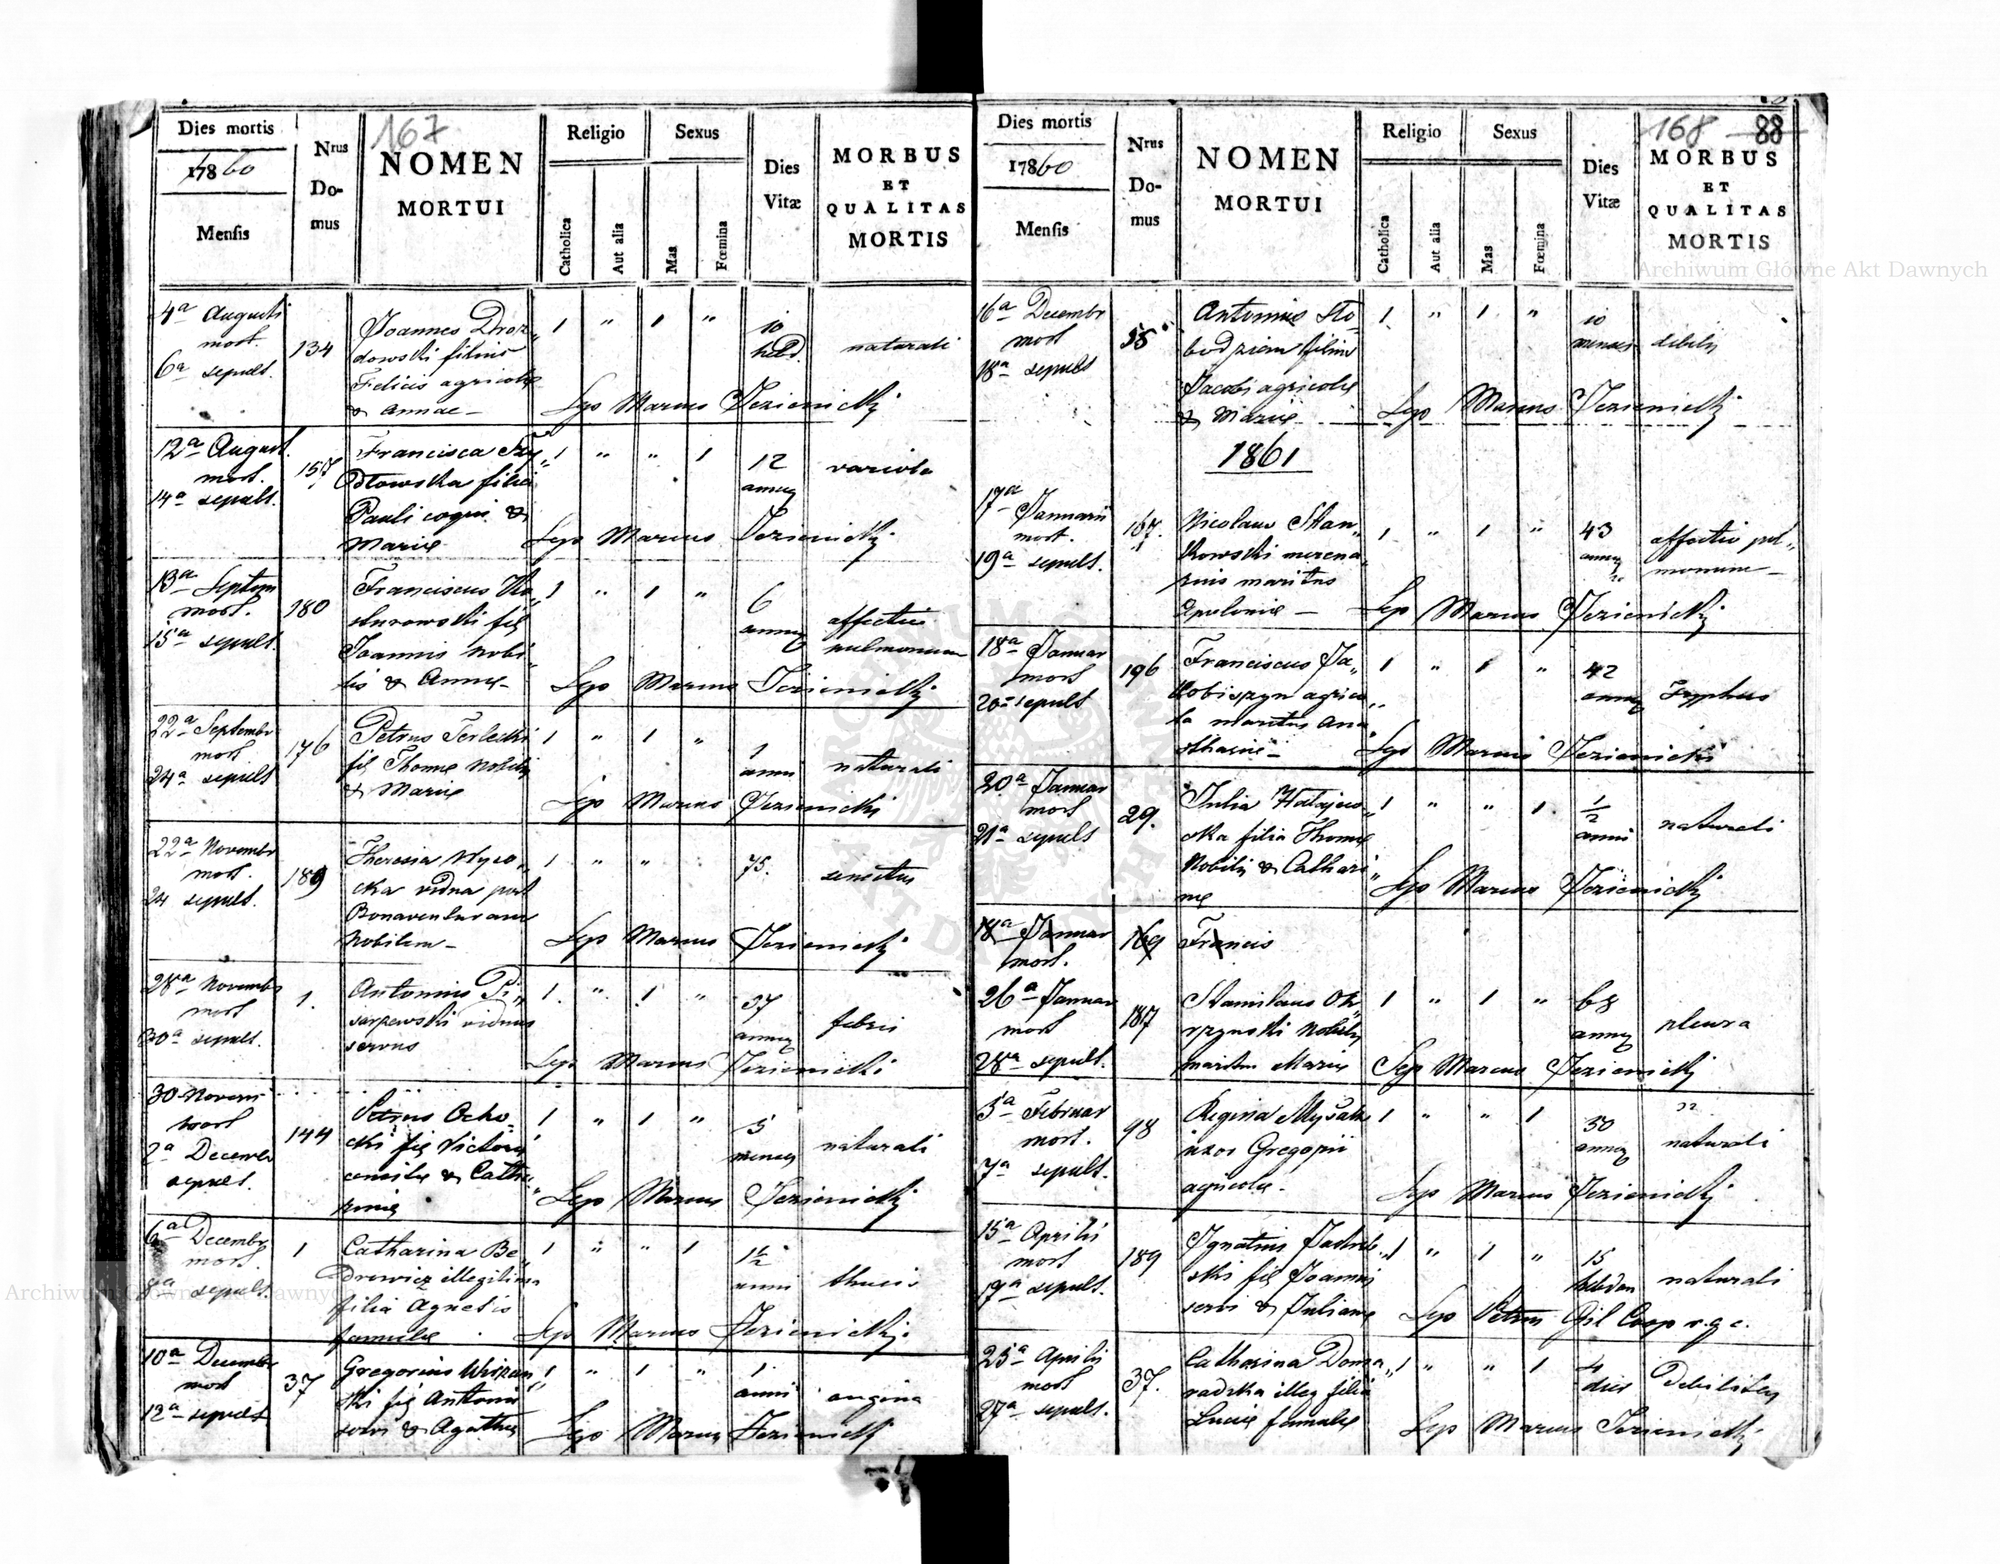 167
Dies mortis
17860
Mensis
Nrus
Do-
mus
NOMEN
MORTUI
Religio
Catholica
Aut alia
Sexus
Mas
Fœmina
Dies
Vitæ
MORBUS
ET
QUALITAS
MORTIS
4a Augusti
mort.
6a sepult.
134
Joannes Droz„
dowski filius
Felicis agricolæ
& Annae –
1 „ 1 „
10
hebd.
naturali
Sep Marcus Jezienicki
12a August.
mort.
14a sepult.
157
Francisca
filia
Pauli &
Mariæ
1 „ „ 1
12
annor
variola
Sep Marcus Jezienicki
13a Septem
mort.
15a sepult.
180
Franciscus
fil
Joannis nobi„
lis & Annæ –
1 „ 1 „
6
annor
affectio
pulmonum
Sep Marcus Jezienicki
22a Septembr
mort
24a sepult
176
Petrus Terlecki
fil Thomæ Nobilis
& Mariæ
1 „ 1 „
1
anni
naturali
Sep Marcus Jezienicki
22a Novembr
mort.
24 sepult.
189
Theresia Wyso„
cka vidua post
Bonaventuram
Nobilem –
1 „ „
75.
senectus
Sep Marcus Jezienicki
28va Novembr
mort
30a sepult.
1.
Antonius Pi„
sarzewski viduus
servus
1. „ 1 „
37
annor
febris
Sep Marcus Jezienicki
30 Novem
mort
2a Decembr
sepult.
144
Petrus Ocho„
cki fil Victoris
& Catha„
rinæ
1 „ 1 „
5
menses
naturali
Sep Marcus Jezienicki
6a Decembr
mort.
8va sepult.
1
Catharina Be„
drowicz illegitima
filia Agnetis
famulæ
1 „ „ 1
1½
anni
thucis
Sep Marcus Jezienicki
10a Decembr
mort
12a sepult
37
Gregorius
fil Antonii
servi & Agathæ
1 „ 1 „
1
anni
angina
Sep Marcus Jezienicki
168 88
Dies mortis
17860
Mensis
Nrus
Do-
mus
NOMEN
MORTUI
Religio
Catholica
Aut alia
Sexus
Mas
Fœmina
Dies
Vitæ
MORBUS
ET
QUALITAS
MORTIS
16a Decembr
mort
18a sepult
55
Antonius Slo„
bodzian filius
Jacobi agricolæ
& Mariæ
1 „ 1 „
10
menses
debilis
Sep Marcus Jezienicki
1861
17a Januarii
mort.
19a sepult.
167.
Nicolaus Stan„
kowski mercena„
rius maritus
Apoloniæ –
1 „ 1 „
43
annor
affectio pul„
monum –
Sep Marcus Jezienicki
18a Januar
mort
20a sepult
196
Franciscus Ja„
kobiszyn agrico„
la maritus Ana„
stasiæ –
1 „ 1 „
42
annor
Typhus
Sep Marcus Jezienicki
20a Januar
mort
21a sepult
29.
Julia
filia Thomæ
Nobilis & Cathari„
næ
1 „ „ 1
½
anni
naturali
Sep Marcus Jezienicki
18a Januar
mort.
169
Francis
26a Januar
mort
28va sepult.
187
Stanislaus
Nobilis
maritus Mariæ
1 „ 1 „
68
annor
pleura
Sep Marcus Jezienicki
5a Februar
mort.
7a sepult.
98
Regina
uxor Gregorii
agricolæ.
1 „ „ 1
50
annor
naturali
Sep Marcus Jezienicki
15a Aprilis
mort
17a sepult.
189
Ignatius
fil Joannis
servi & Julianæ
1 „ 1 „
15
hebdom
naturali
Sep Petrus Gil Coop r. g. c.
25a Aprilis
mort
27a sepult.
37.
Catharina Doma„
radzka illeg filia
Luciæ famulæ
1 „ „ 1
4
dies
Debilitas
Sep Marcus Jezienicki
Archiwum Główne Akt Dawnych
Archiwum Główne Akt Dawnych
ARCHIWUM GŁÓWNE AKT DAWNYCH